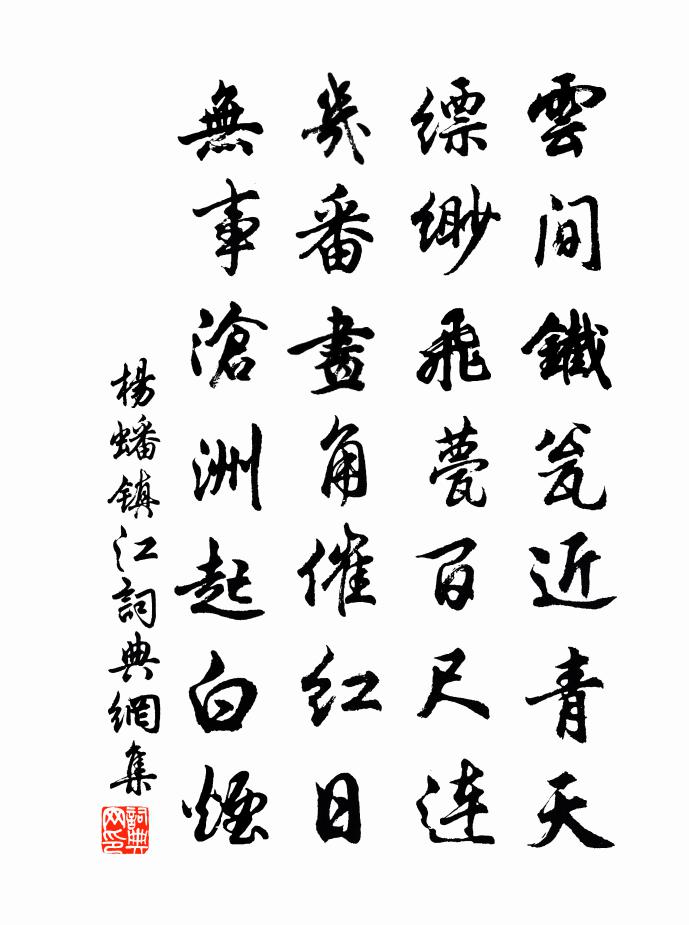 雲間鐵瓮近青天
縹緲飛甍百尺連
幾番畫角催紅日
無事滄洲起白煙
楊蟠鎮江詞典網集
詞典网印